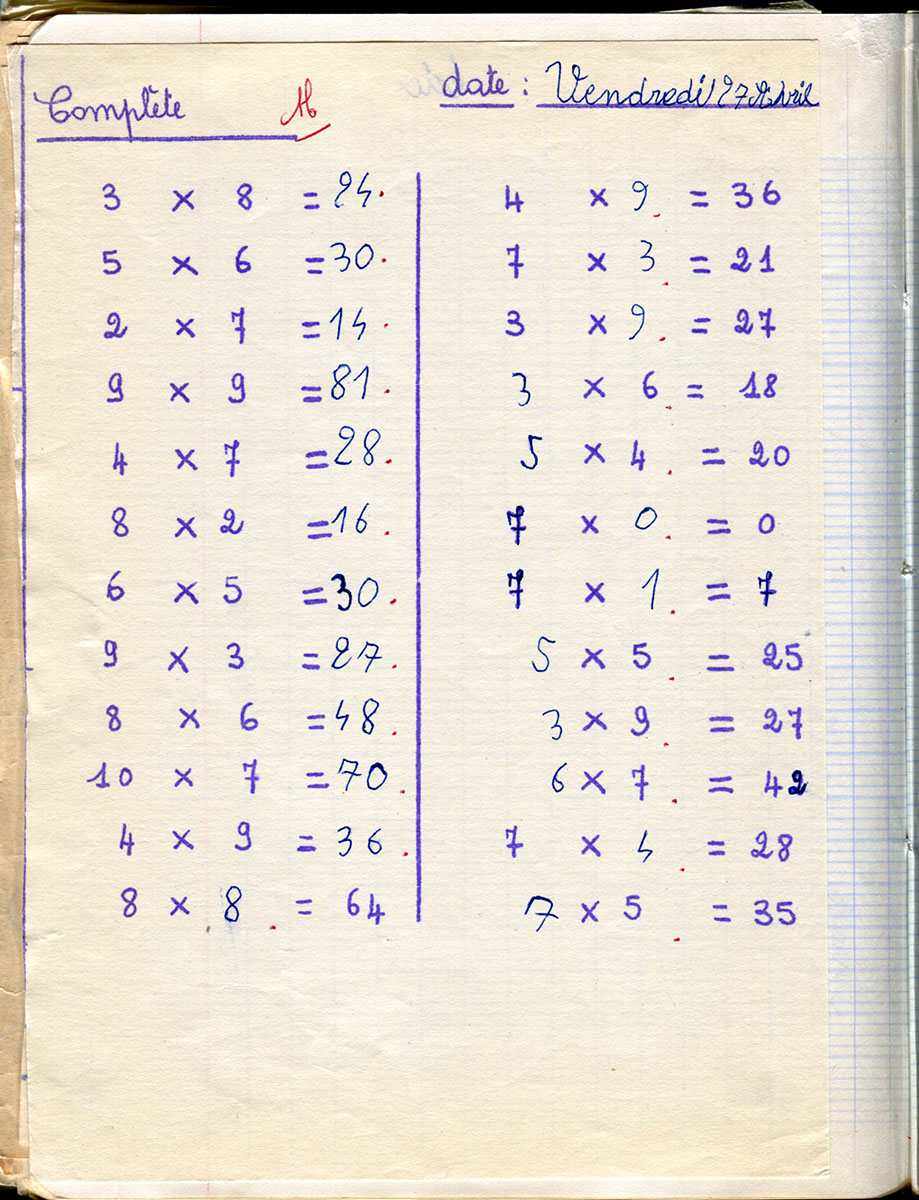 Complète
date : Vendredi 27 Avril
3 × 8 = 24
5 × 6 = 30
2 × 7 = 14
9 × 9 = 81
4 × 7 = 28
8 × 2 = 16
6 × 5 = 30
9 × 3 = 27
8 × 6 = 48
10 × 7 = 70
4 × 9 = 36
8 × 8 = 64
4 × 9 = 36
7 × 3 = 21
3 × 9 = 27
3 × 6 = 18
5 × 4 = 20
7 × 0 = 0
7 × 1 = 7
5 × 5 = 25
3 × 9 = 27
6 × 7 = 42
7 × 4 = 28
7 × 5 = 35